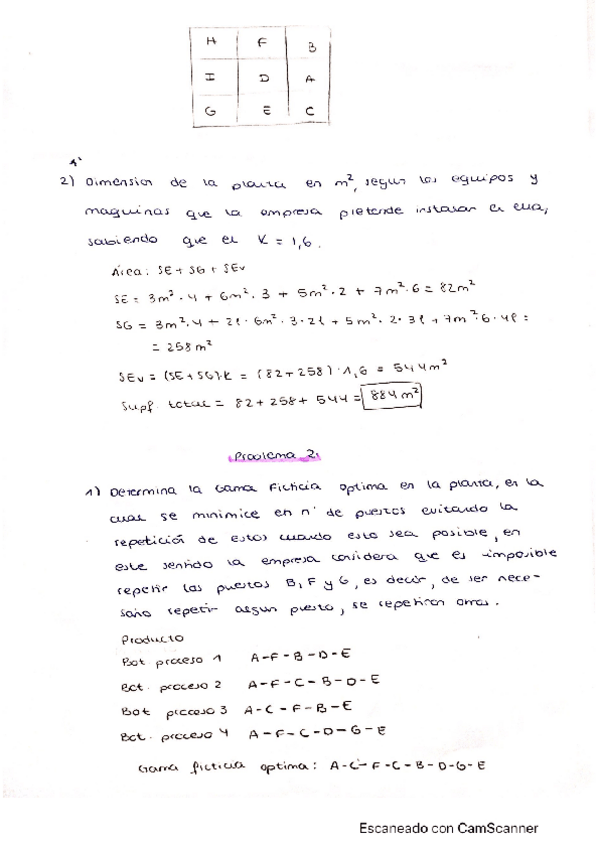 H F B
I D A
G E C
2) Dimension de la planta en m², segun los equipos y
maquinas que la empresa pretende instalar en ella,
sabiendo que el K = 1,6.
Area: SE + SG + SEv
SE = 3m² · 4 + 6m² · 3 + 5m² · 2 + 7m² · 6 = 82m²
SG = 3m² · 4 + 2l · 6m² · 3 · 2l + 5m² · 2 · 3l + 7m² · 6 · 4l =
= 258m²
SEv = (SE + SG) · K = (82 + 258) · 1,6 = 544m²
Supf. total = 82 + 258 + 544 = 884m²
Problema 2.
1) Determina la Gama Ficticia optima en la planta, en la
cual se minimice en n° de puestos evitando la
repetición de estos cuando esto sea posible, en
este sentido la empresa considera que es imposible
repetir los puestos B, F y G, es decir, de ser nece-
sario repetir algun puesto, se repetiran otros.
Producto
Bot proceso 1 A-F-B-D-E
Bot. proceso 2 A-F-C-B-D-E
Bot proceso 3 A-C-F-B-E
Bot. proceso 4 A-F-C-D-G-E
Gama ficticia optima: A-C-F-C-B-D-G-E
Escaneado con CamScanner